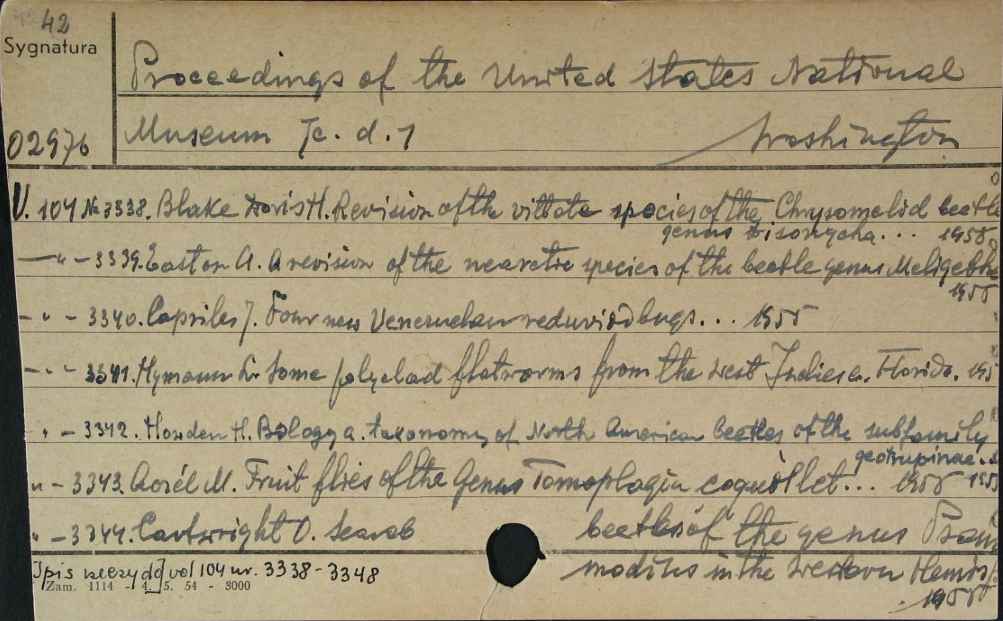 42
Sygnatura
Proceedings of the United States National
02976
Museum Jc. d. 1
Washington
V. 104 № 3338. Blake Doris H. Revision of the vittate species of the Chrysomelid beetle
genus Disonycha... 1955
— " — 3339. Easton A. A revision of the nearctic species of the beetle genus Meligethe
1955
— " — 3340. Capriles J. Four new Venezuelan reduviid bugs... 1955
— " — 3341. Hyman L. Some polyclad flatworms from the West Indies a. Florida. 195
" — 3342. Howden H. Biology a. taxonomy of North American beetles of the subfamily
geotrupinae. 1955
" — 3343. Aczél M. Fruit flies of the Genus Tomoplagia coquillet... 1955
" — 3344. Cartwright O. Scarab beetles of the genus Psam
modius in the Western Hemis
1955
Spis vol 104 nr. 3338-3348
Zam. 1114 - 4. 5. 54 - 3000